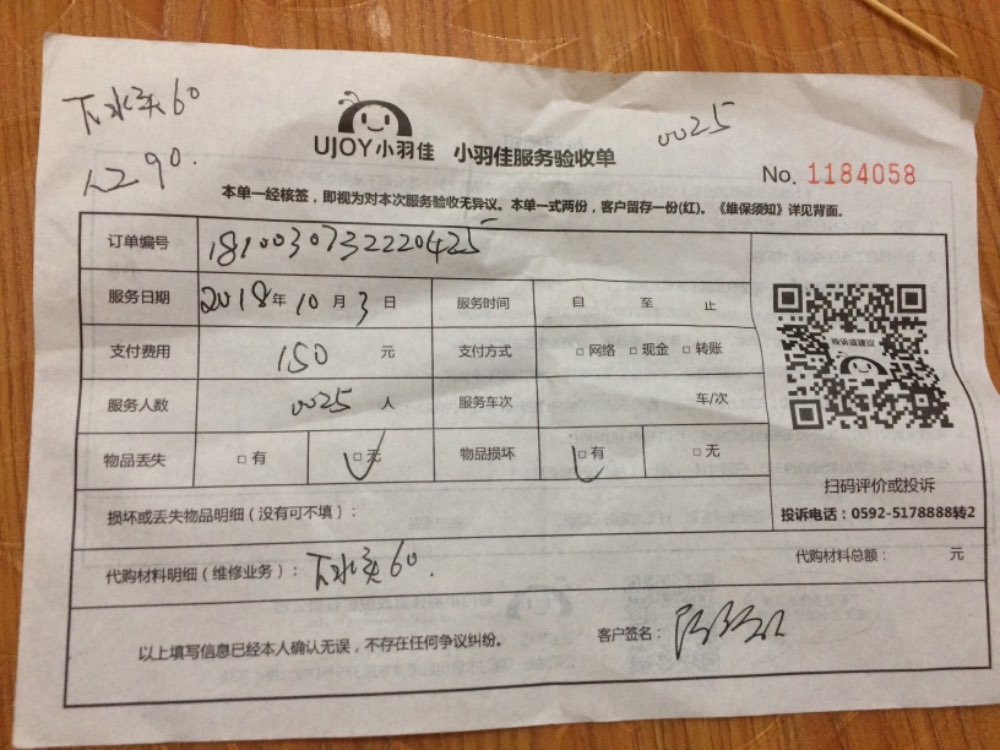 下水头60
人工90.
0025
UJOY小羽佳 小羽佳服务验收单
No. 1184058
本单一经核签，即视为对本次服务验收无异议。本单一式两份，客户留存一份(红)。《维保须知》详见背面。
订单编号 1810030732220425
服务日期 2018年10月3日 服务时间 自 至 止
支付费用 150 元 支付方式 □网络 □现金 □转账
服务人数 0025 人 服务车次 车/次
物品丢失 □有 □无 物品损坏 □有 □无
投诉或建议
扫码评价或投诉
投诉电话：0592-5178888转2
损坏或丢失物品明细（没有可不填）：
代购材料明细（维修业务）： 下水头60. 代购材料总额： 元
以上填写信息已经本人确认无误，不存在任何争议纠纷。 客户签名：